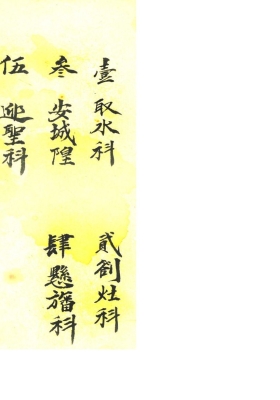 壹 取水科 貳 劄灶科
叁 安城隍 肆 懸旛科
伍 迎聖科